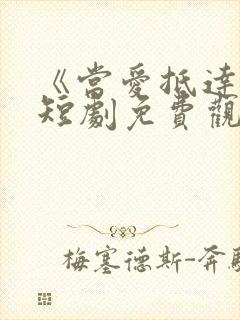 《當愛抵達
短劇免費觀
梅塞德斯-奔馳